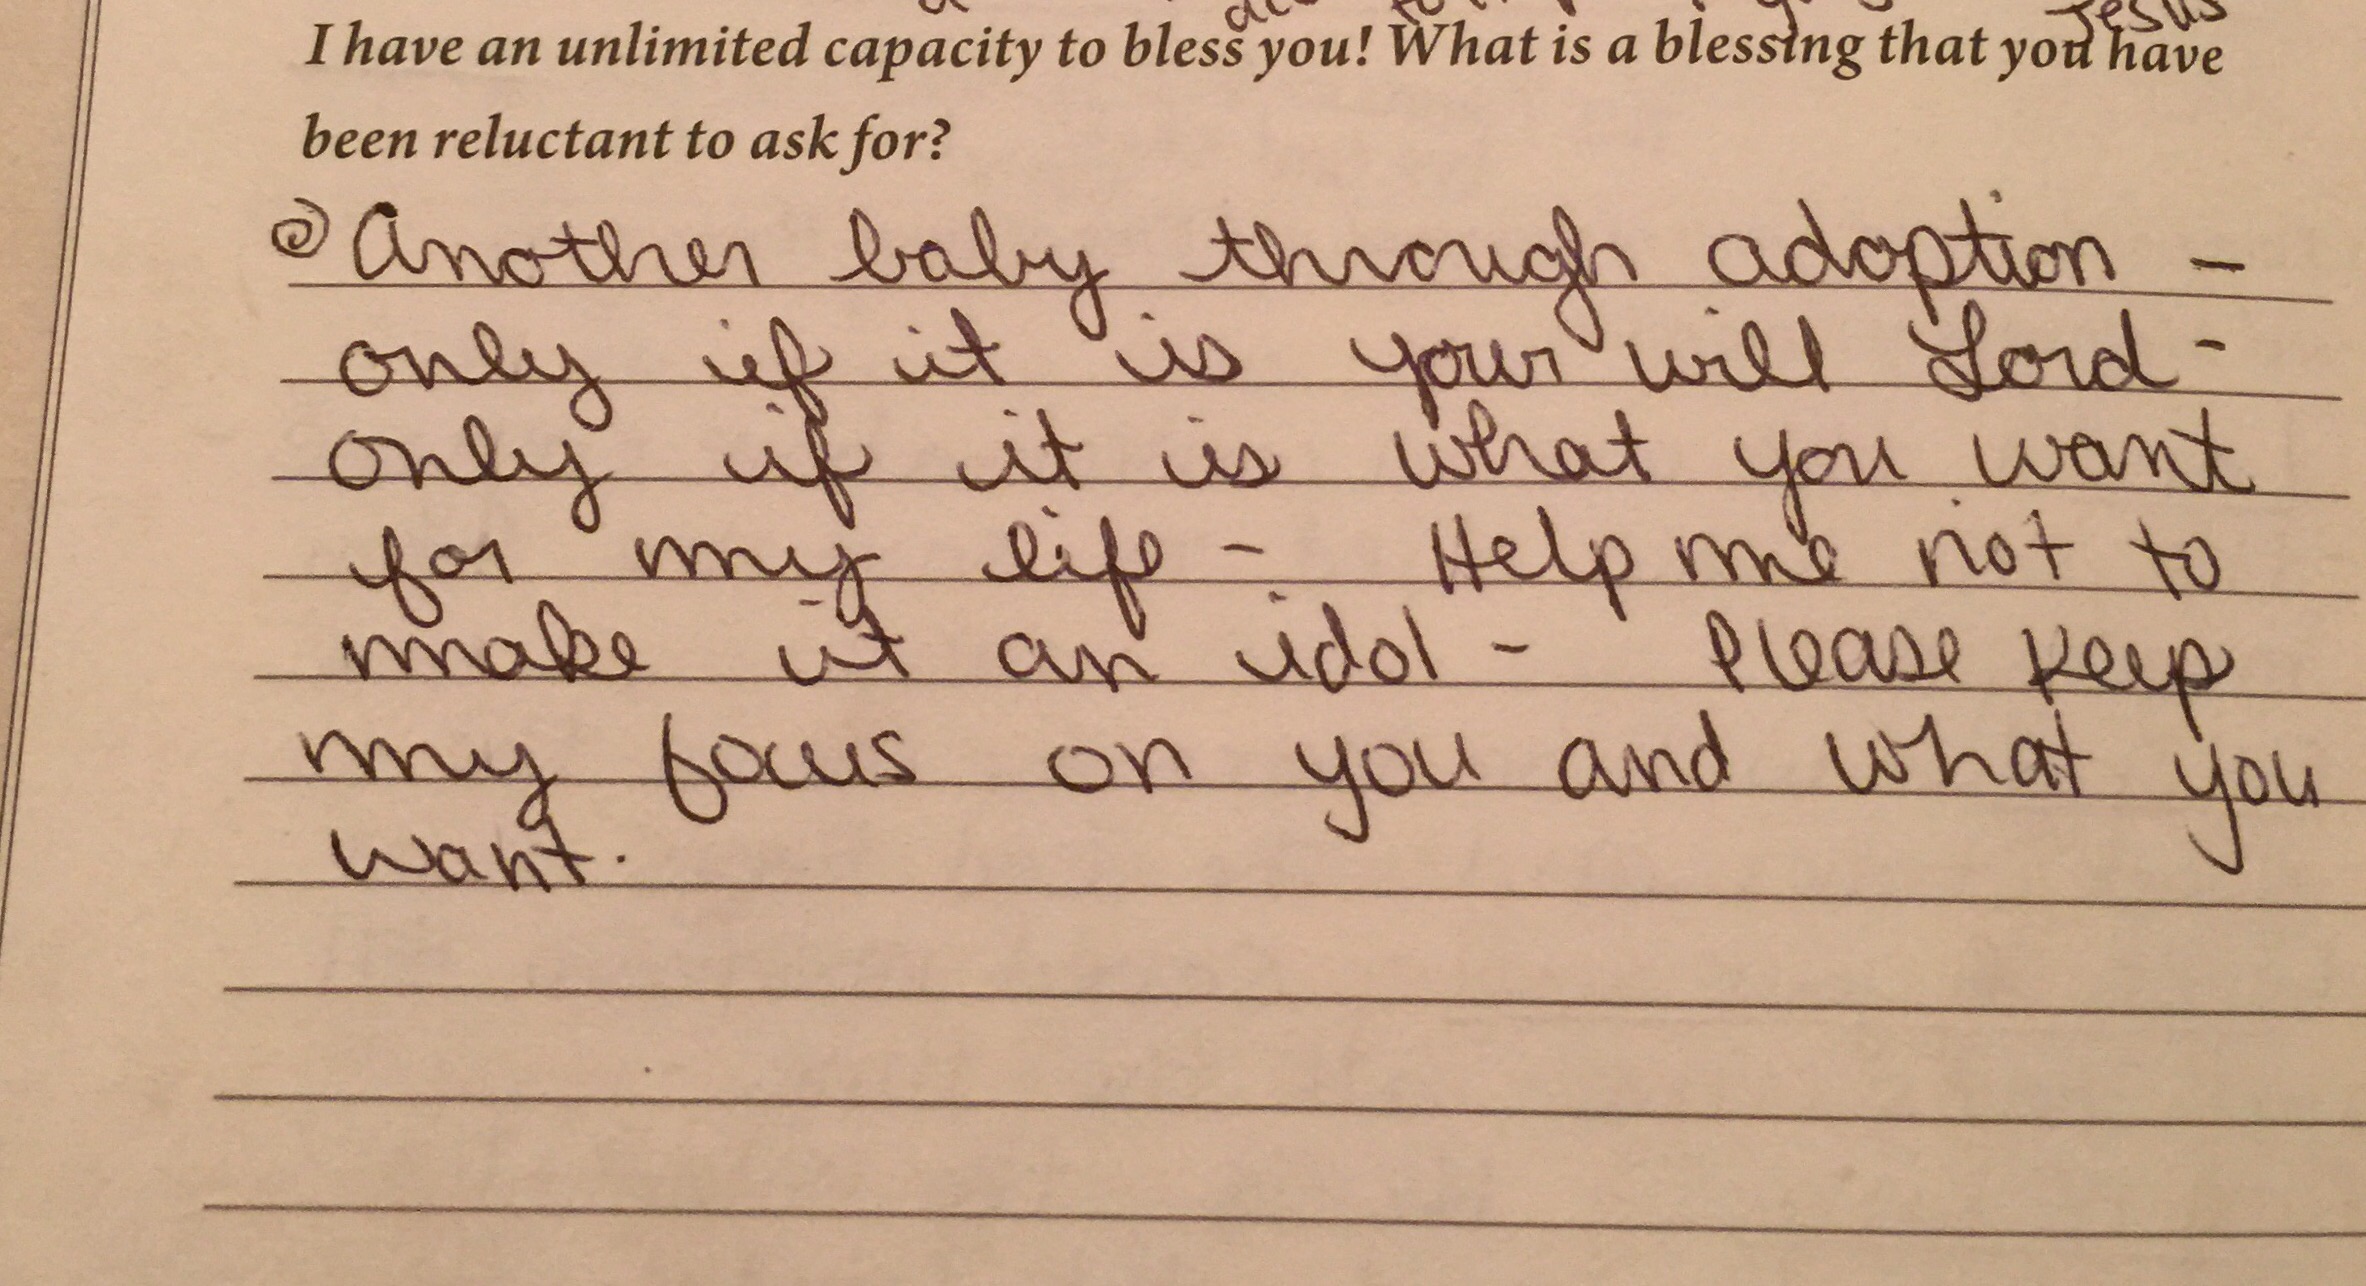 Jesus
I have an unlimited capacity to bless you! What is a blessing that you have
been reluctant to ask for?
Another baby through adoption -
only if it is your will Lord -
only if it is what you want
for my life - Help me not to
make it an idol - Please keep
my focus on you and what you
want.